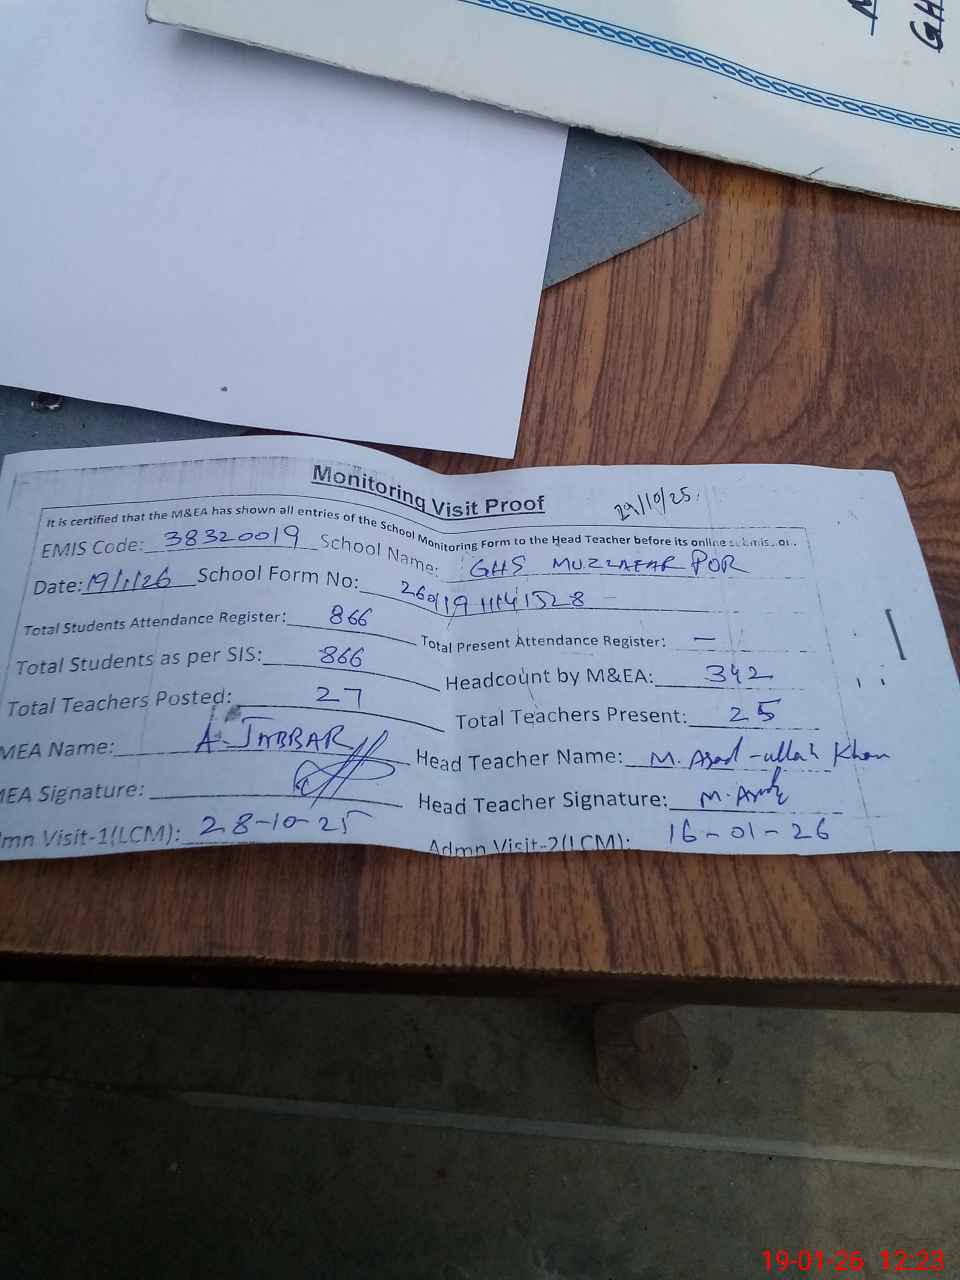 GH
Monitoring Visit Proof 29/10/25
It is certified that the M&EA has shown all entries of the School Monitoring Form to the Head Teacher before its online
EMIS Code: 38320019 School Name: GHS MUZZAFAR POR
Date: 19/1/26 School Form No: 26011911141528
Total Students Attendance Register: 866 Total Present Attendance Register: —
Total Students as per SIS: 866 Headcount by M&EA: 342
Total Teachers Posted: 27 Total Teachers Present: 25
MEA Name: A. JABBAR Head Teacher Name: M. Asad-ullah Khan
MEA Signature: Head Teacher Signature: M. Asad
dmn Visit-1(LCM): 28-10-25 Admn Visit-2(LCM): 16-01-26
19-01-26 12:23